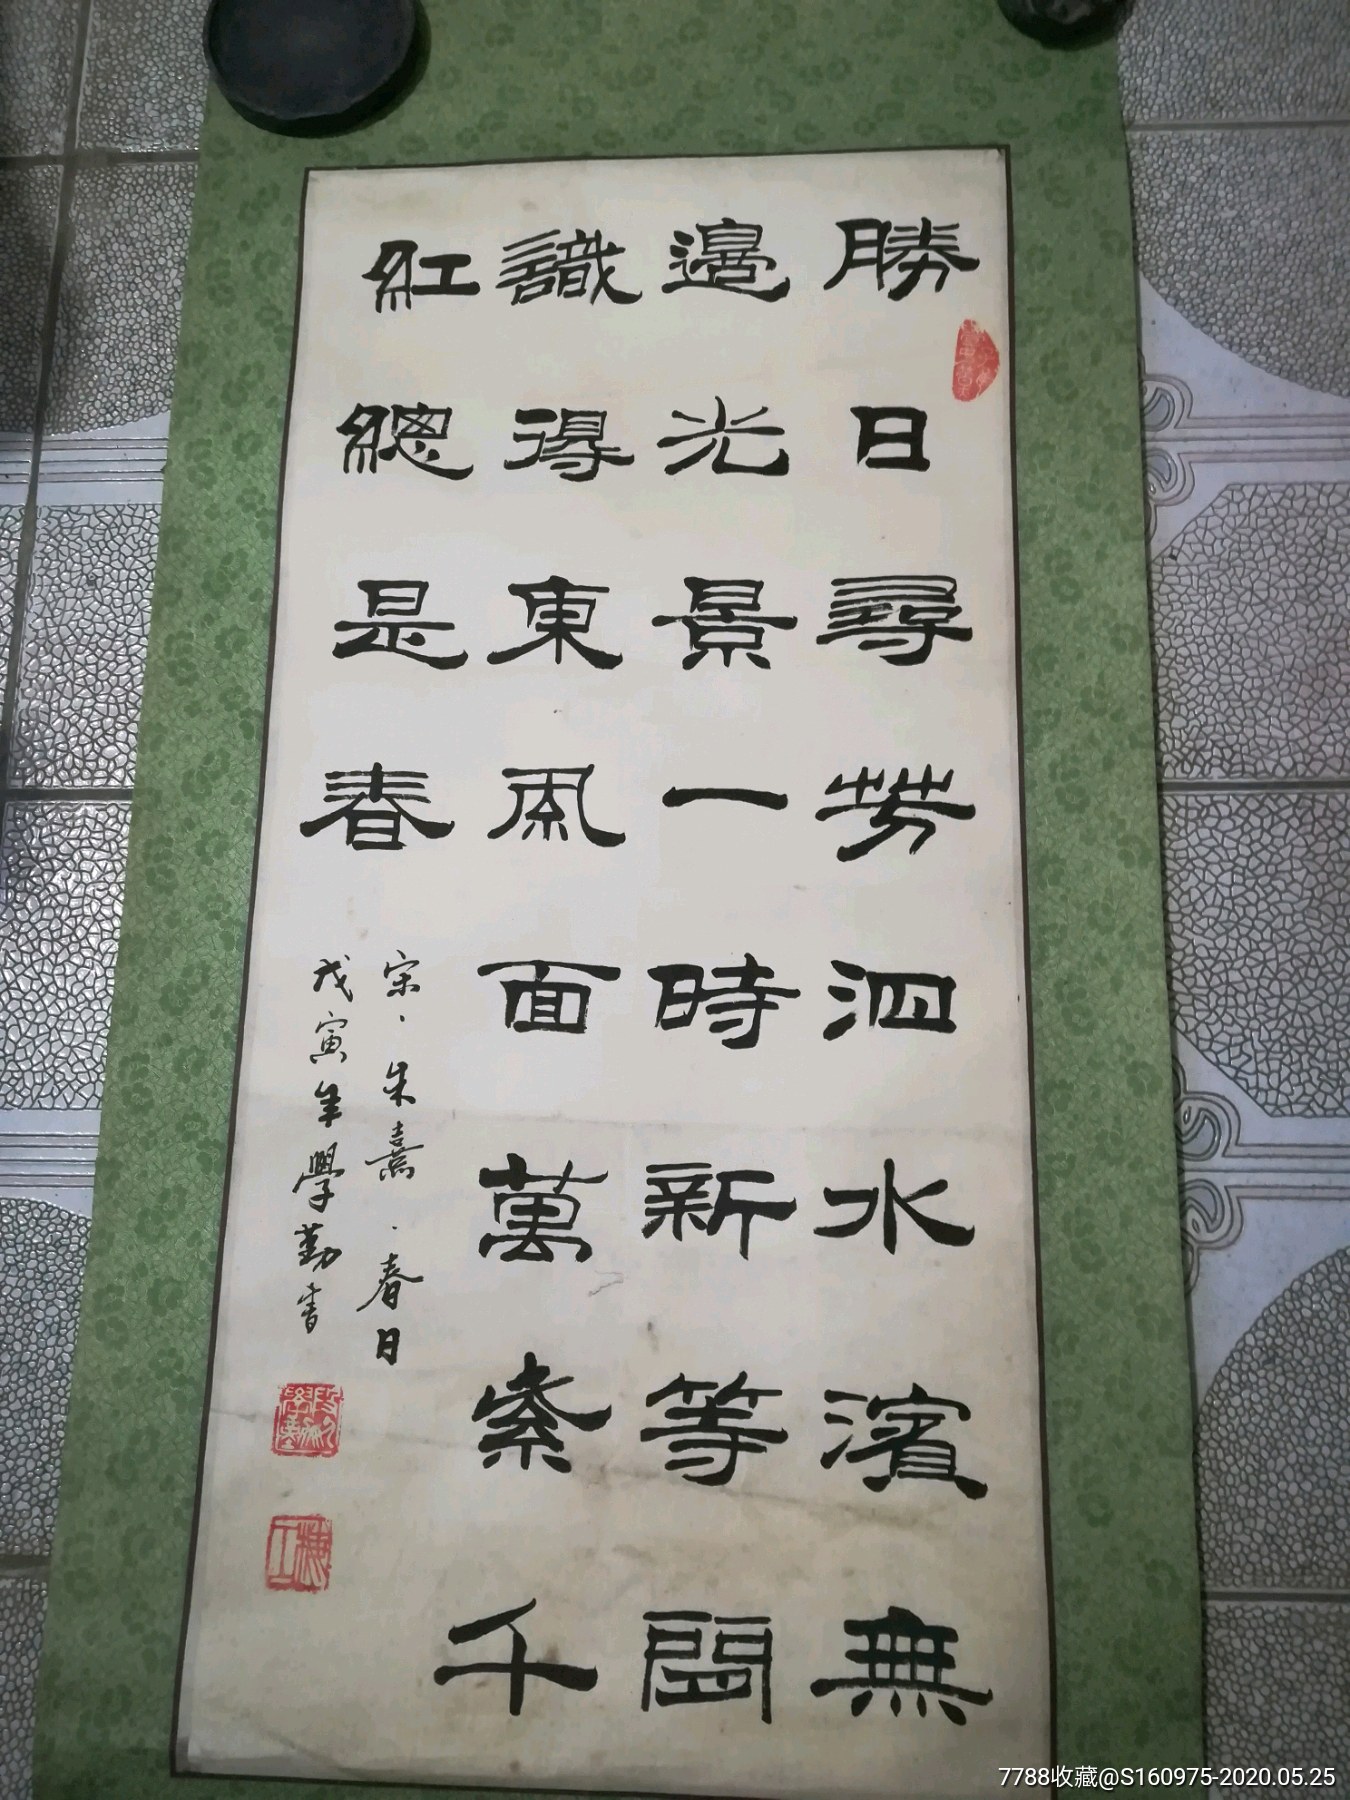 勝日尋芳泗水濱無
邊光景一時新等間
識得東風面萬紫千
紅總是春
宋、朱熹·春日
戊寅年學勤書
7788收藏@S160975-2020.05.25